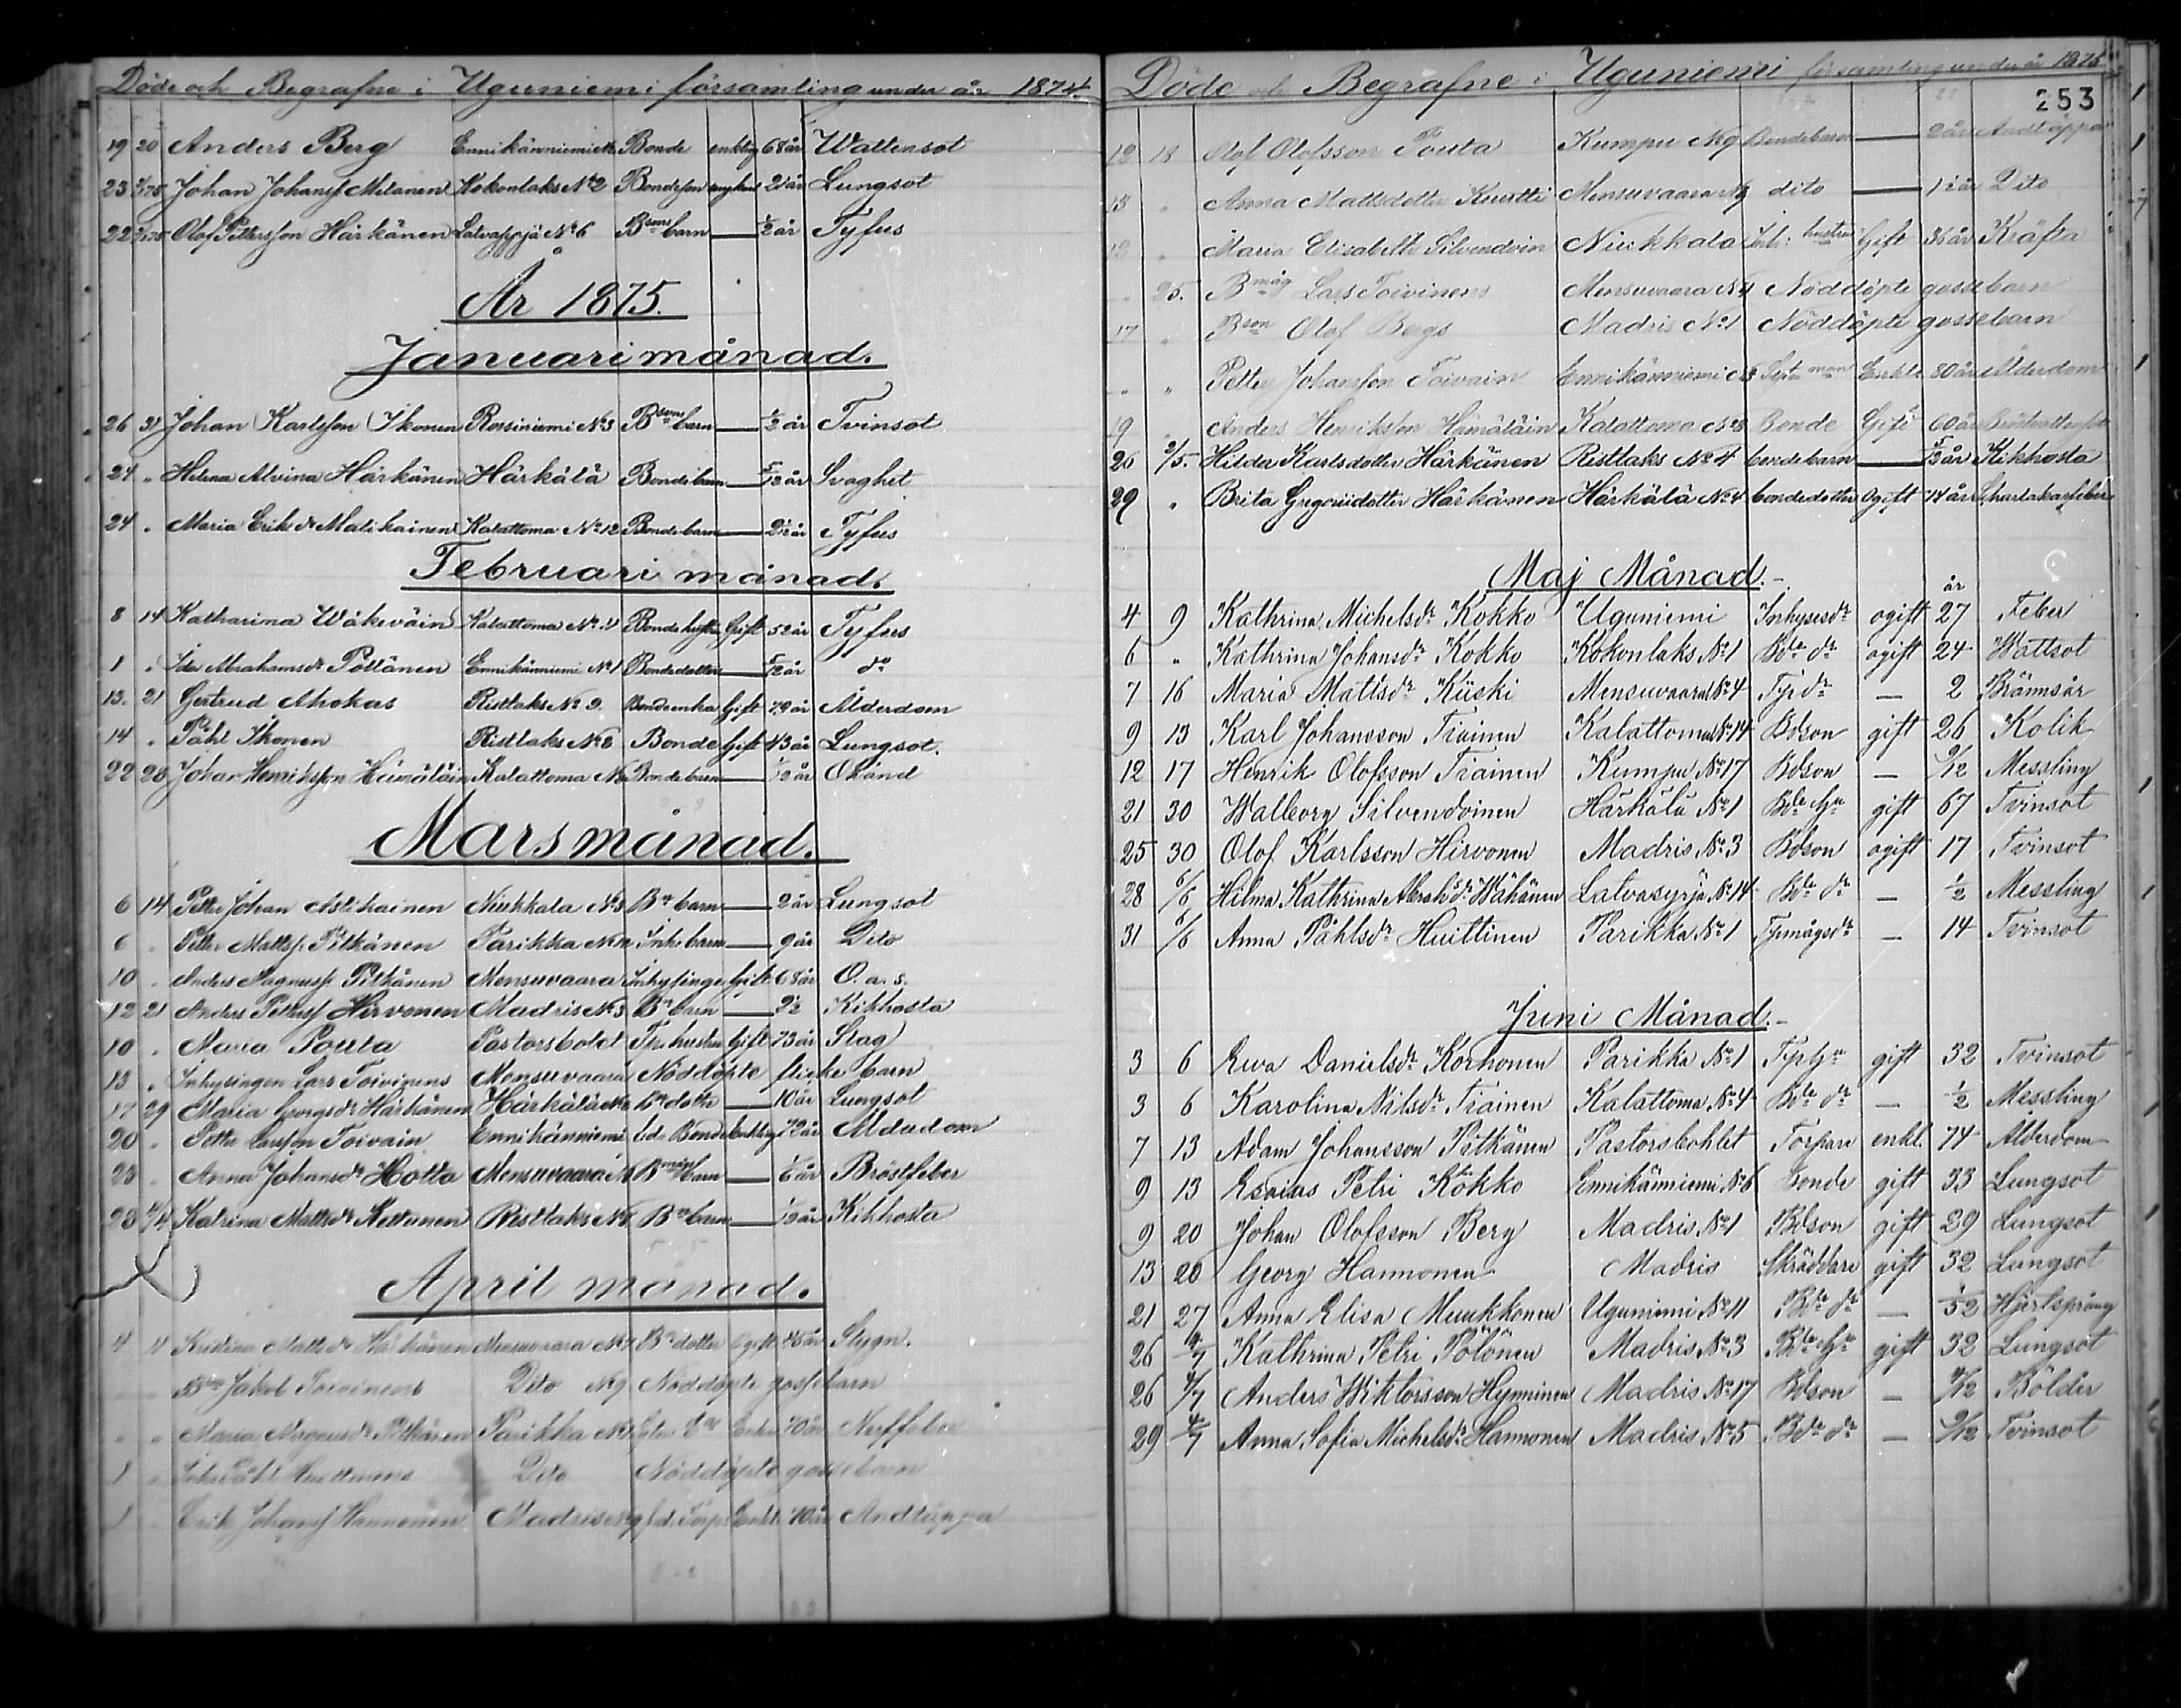 Döde och Begrafne i Uguniemi församling under år 1874.
19 20 Anders Berg Ennikänniemi Bonde enkling 68 år Wattensot
23 3/1 75 Johan Johanss Melanen Kokonlaks No 2 Bondeson ungkarl 21 år Lungsot
22 3/1 75 Olof Pettersson Härkänen Latvasyrjä No 6 Bsons barn — 1/2 år Tyfus
År 1875.
Januari månad.
26 31 Johan Karlsson Ikonen Rossiniemi No 3 Bsons barn — 1/2 år Tvinsot
24 " Helena Alvina Härkänen Härkälä Bondebarn — 5/12 år Svaghet
24 " Maria Eriksdr Matikainen Kalattoma No 12 Bondebarn — 2 1/2 år Tyfus
Februari månad.
8 14 Katharina Wäkeväin Kalattoma No 11 Bondehustru Gift 52 år Tyfus
1 " Ida Abrahamsdr Pöllänen Ennikänniemi No 1 Bondedotter — 5/12 år do
13. 21 Gertrud Ahokas Ristlaks No 9. Bondeenka Gift 79 år Ålderdom
14 " Påhl Ikonen Ristlaks No 8 Bonde Gift 43 år Lungsot.
22 28 Johan Henriksson Hämäläin Kalattoma No Bondebarn — 1/12 år Okänd
Mars månad.
6 14 Petter Johan Asikainen Niukkala No 3 Bs barn — 2 år Lungsot
6 " Petter Mattss Pitkänen Parikka No Inhs barn — 9 år Dito
10 " Anders Magnuss Pitkänen Mensuvaara Inhysinge Gift 68 år O. a. s.
12 21 Anders Petterss Hirvonen Madris No 3 Bs barn — 2 1/2 Kikhosta
10 " Maria Pouta Pastorsbolet Tprs hustru Gift 73 år Slag
13 " Inhysingen Lars Toivinens Mensuvaara Nöddöpte flickebarn
17 29 Maria Georgsdr Härkänen Härkälä No Bs dotter — 10 år Lungsot
20 " Petter Larsson Toivain Ennikänniemi f.d. Bonde Enkling 72 år Ålderdom
23 " Anna Johansdr Hotta Mensuvaara No Bmågs barn — 1/6 år Bröstfeber
28 4/4 Katrina Mattsdr Kettonen Ristlaks No Bs barn — 1/12 år Kikhosta
April månad.
4 11 Kristina Mattsdr Härkänen Mensuvaara No 7 Bs dotter Ogift 45 år Stygn.
Jakob Toivinens Dito No 9 Nöddöpte gossebarn
" " Maria Magnusdr Pitkänen Parikka No Enka 70 år
1 " Inhs Påhl Huittinens Dito Nöddöpte gossebarn
1 " Erik Johanss Hannonen Madris No 9 f.d. Torp. Enkl. 70 år Andtäppa
Döde och Begrafne i Uguniemi församling under år 1875
253
12 18 Olof Olofsson Pouta Kumpu No 9 Bondebarn — 2 år Andtäppa
13 " Anna Mattsdotter Kuurtti Mensuvaara No 9 dito — 1 1/2 år Dito
12 " Maria Elisabeth Silvendoin Niukkala Inh: hustru Gift 36 år Kräfta
" 25. Bmåg Lars Toivinens Mensuvaara No 4 Nöddöpte gossebarn
17 " Bson Olof Bergs Madris No 1 Nöddöpte gossebarn
" " Petter Johansson Toivain Ennikänniemi No 3 Enkl. 80 år Ålderdom
19 " Anders Henriksson Hämäläin Kalattoma No 8 Bonde Gift 60 år
26 2/5. Hilda Karlsdotter Härkänen Ristlaks No 4 bondebarn — 5/12 år Kikhosta
29 " Brita Gregoridotter Härkänen Härkälä No 4 bondedotter ogift 14 år Scharlakansfeber
Maj Månad.
år
4 9 Kathrina Michelsdr Kokko Uguniemi Inhysesdr ogift 27 Feber
6 " Kathrina Johansdr Kokko Kokonlaks No 1 Bde dr ogift 24 Wattsot
7 16 Maria Mattsdr Kiiski Mensuvaara No 4 Tprdr — 2 Brännsår
9 13 Karl Johansson Tiainen Kalattoma No 14 Bdson gift 26 Kolik
12 17 Henrik Olofsson Tiainen Kumpu No 17 Bdson — 9/12 Messling
21 30 Walborg Silvendoinen Härkälä No 1 Bde Hu gift 67 Tvinsot
25 30 Olof Karlsson Hirvonen Madris No 3 Bdson ogift 17 Tvinsot
28 6/6 Hilma Kathrina Abrahsdr Wähänen Latvasyrjä No 14 Bde dr — 1/2 Messling
31 6/6 Anna Påhlsdr Huittinen Parikka No 1 Tpmågsdr — 14 Tvinsot
Juni Månad.
3 6 Ewa Danielsdr Korhonen Parikka No 1 TprHu gift 32 Tvinsot
3 6 Karolina Nilsdr Tiainen Kalattoma No 4 Bde dr — 1/2 Messling
7 13 Adam Johansson Pitkänen Pastorsbohlet Torpare enkl. 74 Ålderdom
9 13 Esaias Petri Kokko Ennikänniemi No 6 Bonde gift 33 Lungsot
9 20 Johan Olofsson Berg Madris No 1 Bdson gift 29 Lungsot
13 20 Georg Hannonen Madris Skräddare gift 32 Lungsot
21 27 Anna Elisa Muukkonen Uguniemi No 11 Bde dr — 1/52 Hjertsprång
26 4/7 Kathrina Petri Pölönen Madris No 3 Bde Hu gift 32 Lungsot
26 4/7 Anders Wiktorsson Hynninen Madris No 17 Bdson — 9/12 Bölder
29 4/7 Anna Sofia Michelsdr Hannonen Madris No 5 Bde dr — 9/12 Tvinsot